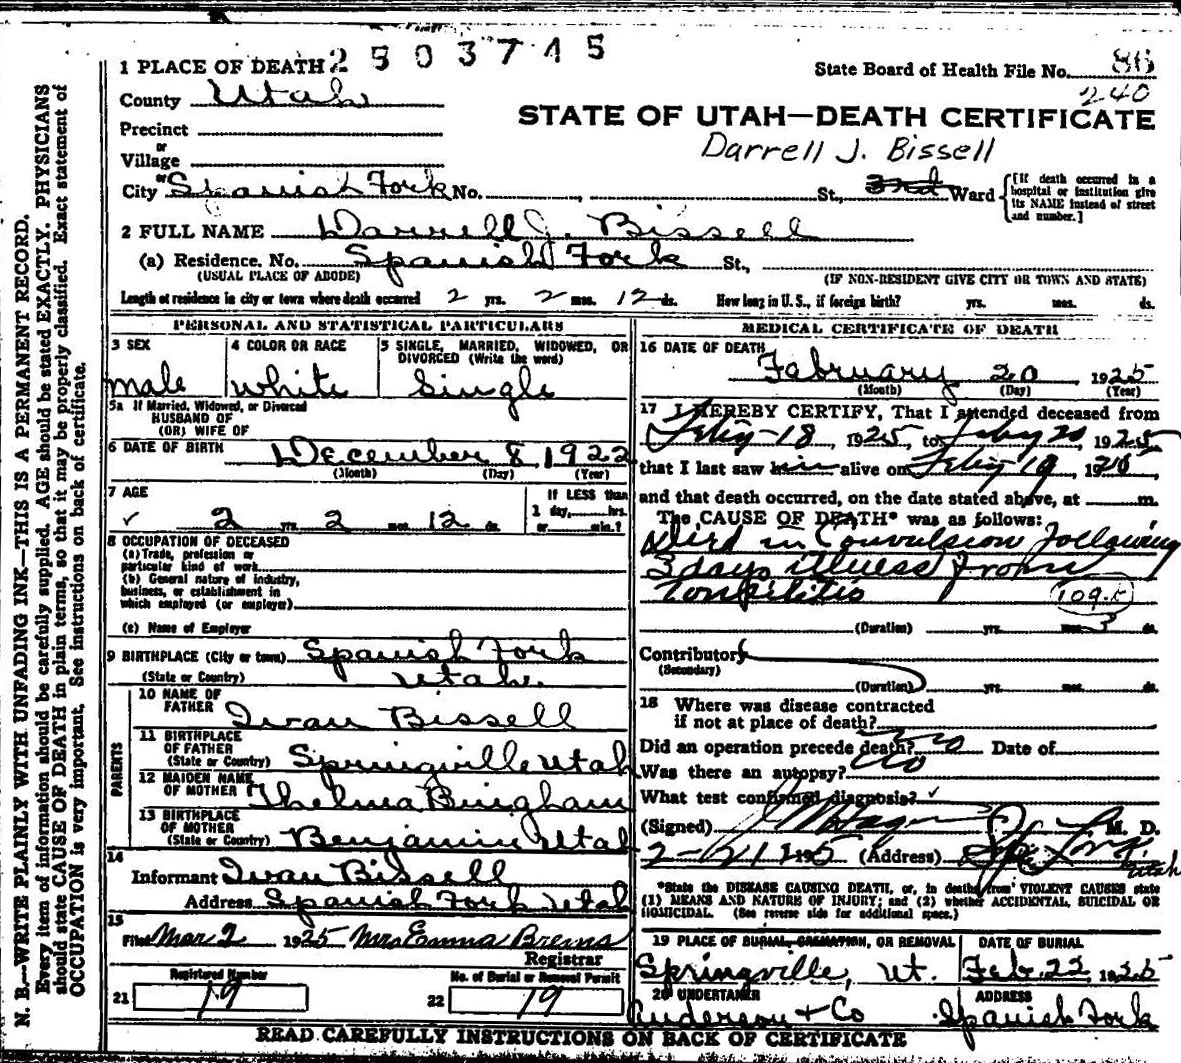 2503745
1 PLACE OF DEATH
State Board of Health File No. 86
240
County Utah
STATE OF UTAH—DEATH CERTIFICATE
Precinct
or
Village
Darrell J. Bissell
or
City Spanish Fork No. St., 3rd Ward
[If death occurred in a hospital or institution give its NAME instead of street and number.]
2 FULL NAME Darrell J. Bissell
(a) Residence. No. Spanish Fork St.,
(USUAL PLACE OF ABODE) (IF NON-RESIDENT GIVE CITY OR TOWN AND STATE)
Length of residence in city or town where death occurred 2 yrs. 2 mos. 12 ds. How long in U. S., if foreign birth? yrs. mos. ds.
PERSONAL AND STATISTICAL PARTICULARS
3 SEX
male
4 COLOR OR RACE
white
5 SINGLE, MARRIED, WIDOWED, OR
DIVORCED (Write the word)
Single
5a If Married, Widowed, or Divorced
HUSBAND OF
(OR) WIFE OF
6 DATE OF BIRTH December 8, 1922
(Month) (Day) (Year)
7 AGE
2 yrs. 2 mos. 12 ds.
If LESS than
1 day, hrs.
or min.?
8 OCCUPATION OF DECEASED
(a) Trade, profession or
particular kind of work
(b) General nature of industry,
business, or establishment in
which employed (or employer)
(c) Name of Employer
9 BIRTHPLACE (City or town) Spanish Fork
(State or Country) Utah.
PARENTS
10 NAME OF
FATHER Ivan Bissell
11 BIRTHPLACE
OF FATHER
(State or Country) Springville Utah
12 MAIDEN NAME
OF MOTHER Thelma Bingham
13 BIRTHPLACE
OF MOTHER
(State or Country) Benjamin Utah
14
Informant Ivan Bissell
Address Spanish Fork Utah
15
Filed Mar 2 1925 Mrs Emma Brems
Registrar
Registered Number
21 19
No. of Burial or Removal Permit
22 19
MEDICAL CERTIFICATE OF DEATH
16 DATE OF DEATH
February 20 1925
(Month) (Day) (Year)
17 I HEREBY CERTIFY, That I attended deceased from
Feby 18, 1925, to Feby 20, 1925
that I last saw him alive on Feby 19, 1925
and that death occurred, on the date stated above, at m.
The CAUSE OF DEATH* was as follows:
Died in Convulsion following
3 days illness from
Tonsilitis
109.k
(Duration) yrs. mos. 3 ds.
Contributory
(Secondary)
(Duration) yrs. mos. ds.
18 Where was disease contracted
if not at place of death?
Did an operation precede death? No Date of
Was there an autopsy? No
What test confirmed diagnosis?
(Signed) M. D.
2-21 1925 (Address) Sp. Fork, Utah
*State the DISEASE CAUSING DEATH, or, in deaths from VIOLENT CAUSES state
(1) MEANS AND NATURE OF INJURY; and (2) whether ACCIDENTAL, SUICIDAL OR
HOMICIDAL. (See reverse side for additional space.)
19 PLACE OF BURIAL, CREMATION, OR REMOVAL
Springville, Ut.
DATE OF BURIAL
Feb. 22, 1925
20 UNDERTAKER
Anderson & Co
ADDRESS
Spanish Fork
READ CAREFULLY INSTRUCTIONS ON BACK OF CERTIFICATE
N. B.—WRITE PLAINLY WITH UNFADING INK—THIS IS A PERMANENT RECORD.
Every item of information should be carefully supplied. AGE should be stated EXACTLY. PHYSICIANS
should state CAUSE OF DEATH in plain terms, so that it may be properly classified. Exact statement of
OCCUPATION is very important. See instructions on back of certificate.